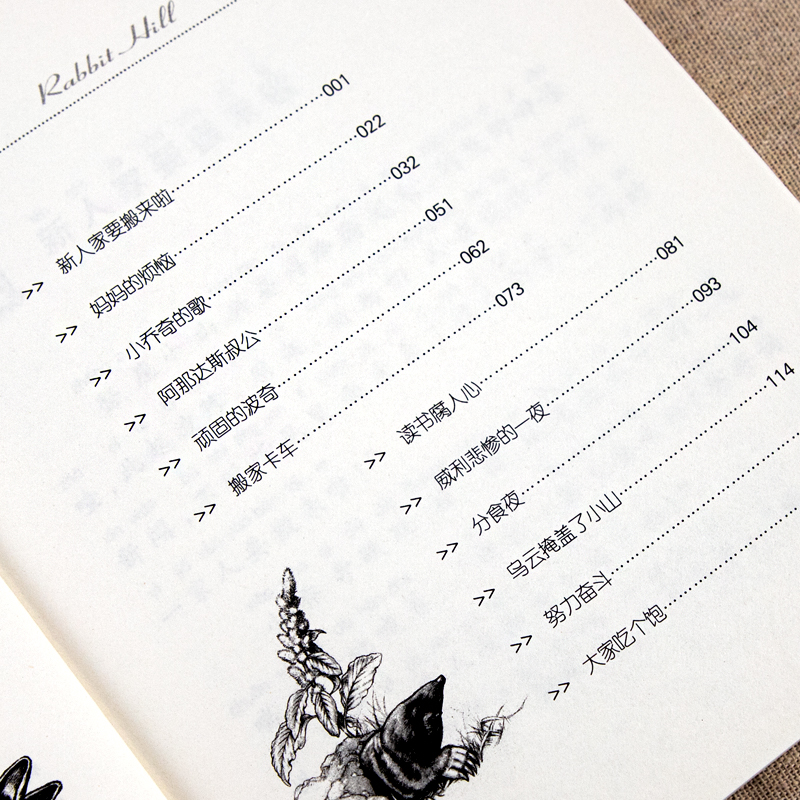 Rabbit Hill
>> 新人家要搬来啦 001
>> 妈妈的烦恼 022
>> 小乔奇的歌 032
>> 阿那达斯叔公 051
>> 顽固的波奇 062
>> 搬家卡车 073
>> 读书腐人心 081
>> 威利悲惨的一夜 093
>> 分食夜 104
>> 乌云掩盖了小山 114
>> 努力奋斗
>> 大家吃个饱